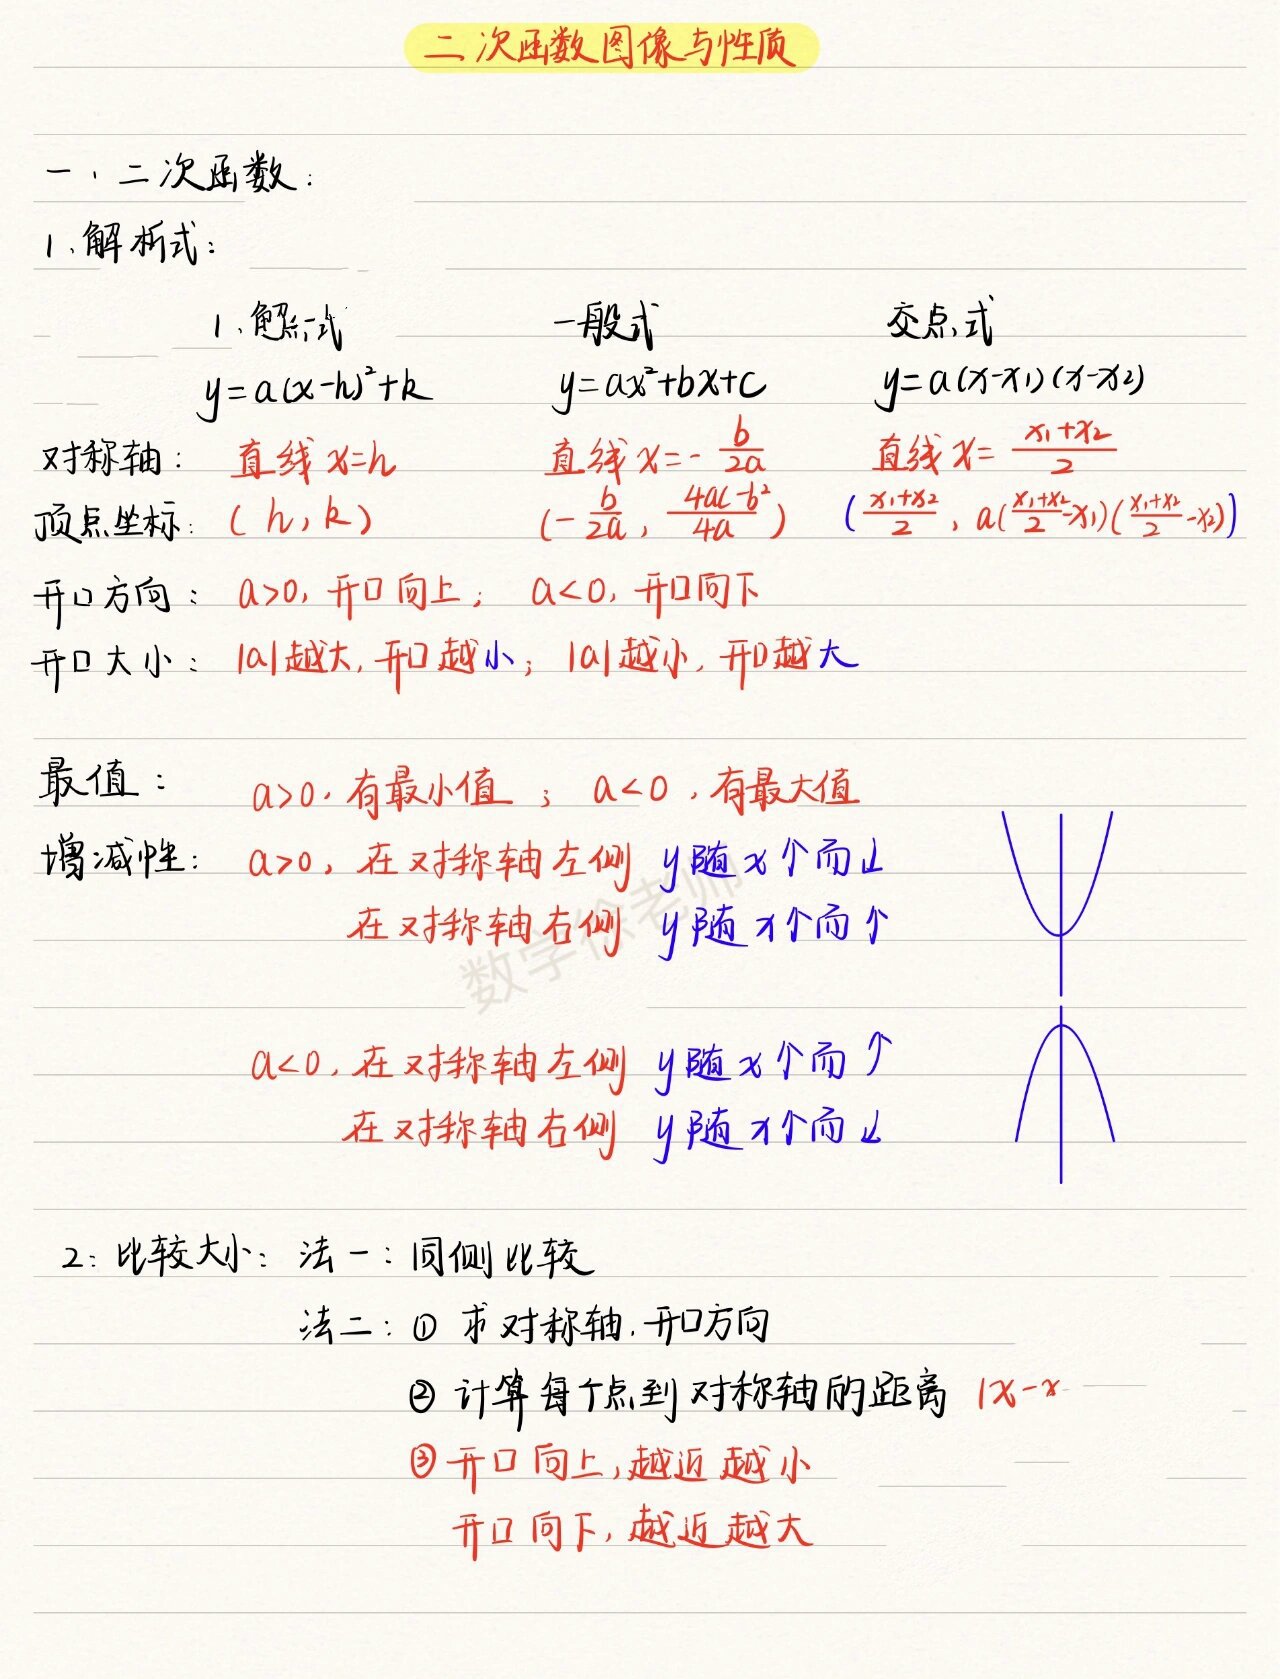 二次函数图像与性质
一、二次函数:
1、解析式:
1、解析式 一般式 交点式
y=a(x-h)²+k y=ax²+bx+c y=a(x-x₁)(x-x₂)
对称轴: 直线x=h 直线x=-b/2a 直线x=(x₁+x₂)/2
顶点坐标: (h,k) (-b/2a, (4ac-b²)/4a) ((x₁+x₂)/2, a((x₁+x₂)/2-x₁)((x₁+x₂)/2-x₂))
开口方向: a>0,开口向上; a<0,开口向下
开口大小: |a|越大,开口越小; |a|越小,开口越大
最值: a>0,有最小值; a<0,有最大值
增减性: a>0,在对称轴左侧 y随x个而↓
在对称轴右侧 y随x个而↑
数学徐老师
a<0,在对称轴左侧 y随x个而↑
在对称轴右侧 y随x个而↓
2:比较大小:法一:同侧比较
法二:① 求对称轴,开口方向
② 计算每个点到对称轴的距离 |x-x
③ 开口向上,越近越小
开口向下,越近越大